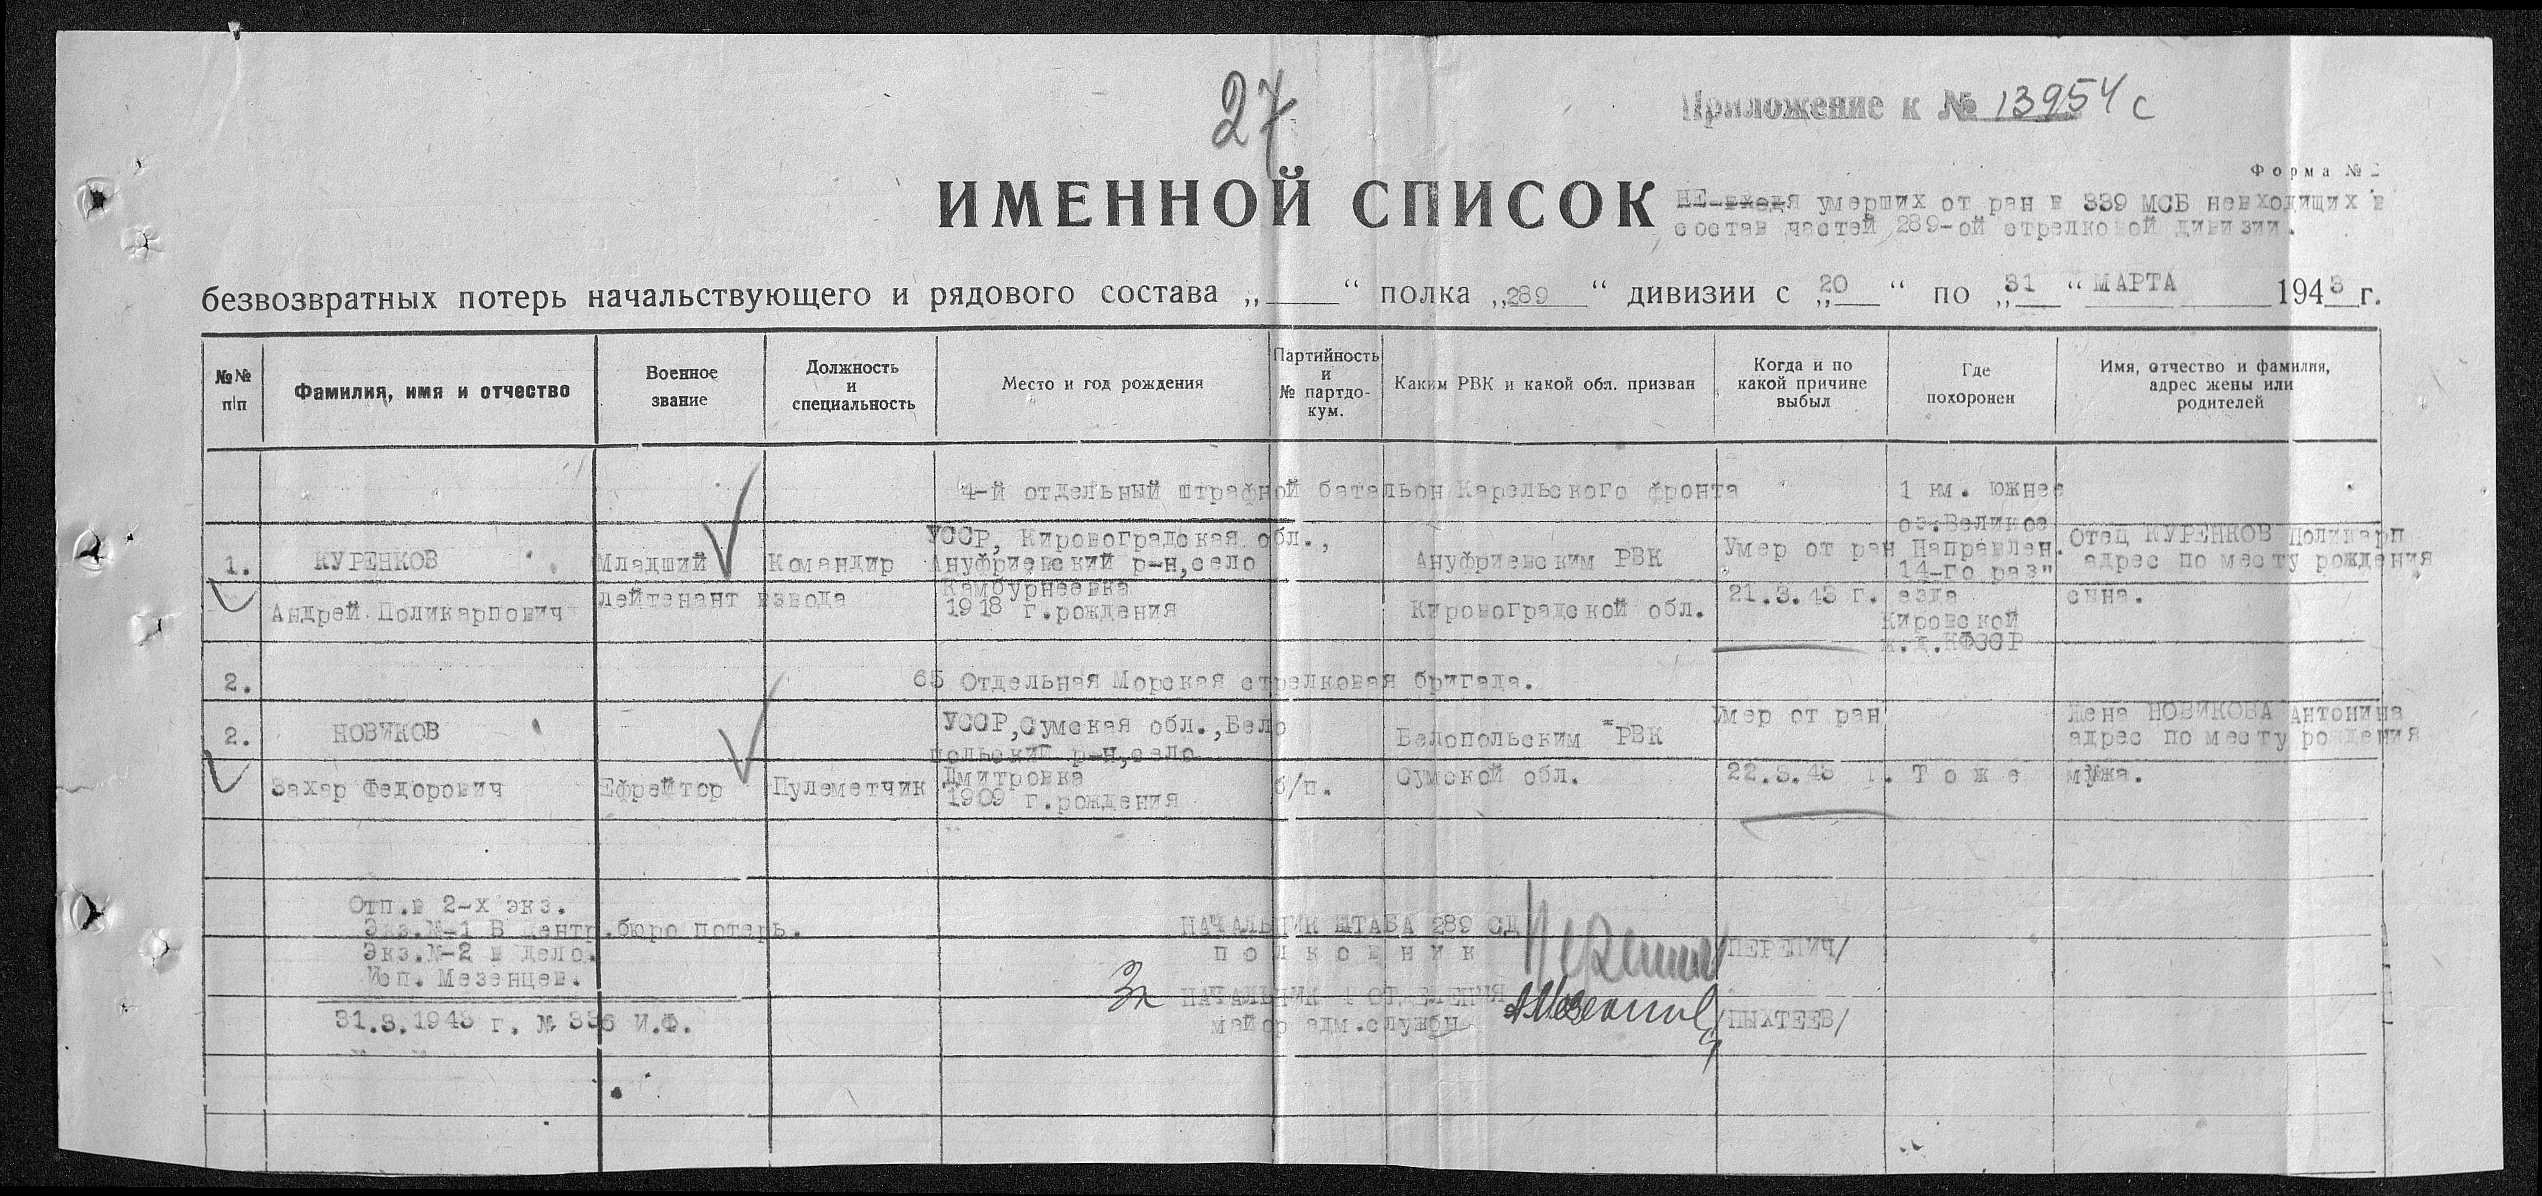 27
Приложение к № 13954с
Форма № 2
ИМЕННОЙ СПИСОК
умерших от ран в 339 МСБ невходищих в
состав частей 289-ой стрелковой дивизии.
безвозвратных потерь начальствующего и рядового состава „____“ полка „289“ дивизии с „20“ по „31“ МАРТА 1943 г.
№№ п/п
Фамилия, имя и отчество
Военное звание
Должность и специальность
Место и год рождения
Партийность и № партдо-кум.
Каким РВК и какой обл. призван
Когда и по какой причине выбыл
Где похоронен
Имя, отчество и фамилия, адрес жены или родителей
4-й отдельный штрафной батальон Карельского фронта
1.
КУРЕНКОВ
Андрей Поликарпович
Младший
лейтенант
Командир
взвода
УССР, Кировоградская обл.,
Ануфриевский р-н, село
Камбурнеевка
1918 г.рождения
Ануфриевским РВК
Кировоградской обл.
Умер от ран
21.3.43 г.
1 км. южнее
оз.Великое
Направлен.
14-го раз"
езда
Кировской
ж.д.КФССР
Отец КУРЕНКОВ Поликарп
адрес по месту рождения
сына.
2.
65 Отдельная Морская стрелковая бригада.
2.
НОВИКОВ
Захар Федорович
Ефрейтор
Пулеметчик
УССР,Сумская обл.,Бело
польский р-н,село
Дмитровка
1909 г.рождения
б/п.
Белопольским РВК
Сумской обл.
Умер от ран
22.3.43 г.
Т о ж е
Жена НОВИКОВА Антонина
адрес по месту рождения
мужа.
Отп.в 2-х экз.
Экз.№-1 В Центр.бюро потерь.
Экз.№-2 в дело.
Исп. Мезенцев.
31.3.1943 г. № 336 И.Ф.
НАЧАЛЬНИК ШТАБА 289 СД
п о л к о в н и к
/ПЕРЕПИЧ/
За НАЧАЛЬНИК 4 ОТДЕЛЕНИЯ
майор адм.службы
/ПЫХТЕЕВ/